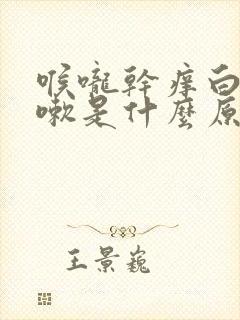 喉嚨幹癢白
嗽是什麼原
王景巍